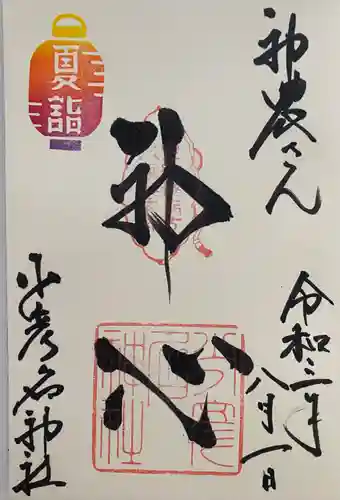 神農さん
令和三年
八月一日
神心
夏詣
少彦名神社
少彦名神社